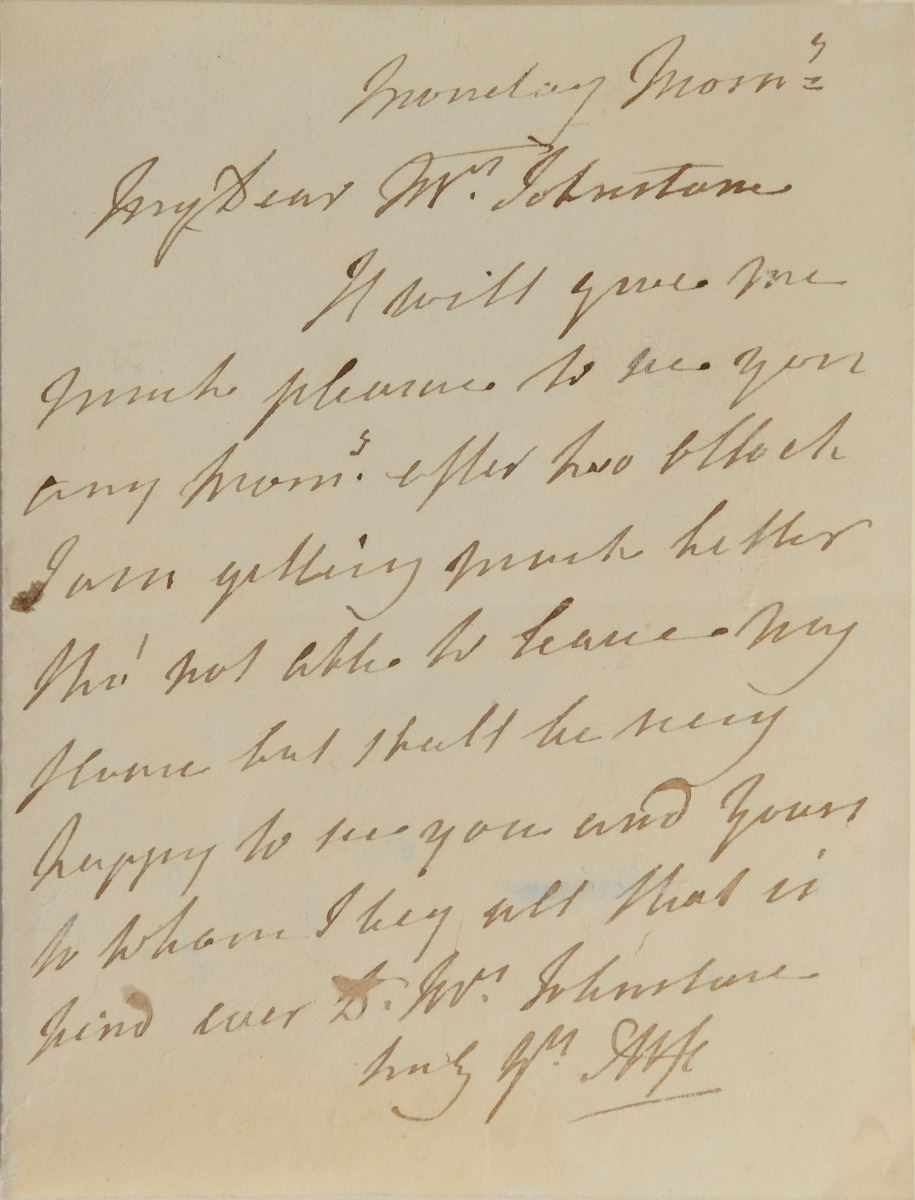 Monday Morn:g
My Dear Mrs. Johnstone
It will give me
much pleasure to see you
any Morn:g after two oClock
I am getting much better
tho' not able to leave my
House but shall be very
happy to see you and Yours
to whom I beg all that is
kind ever Dr. Mrs. Johnstone
truly Yrs